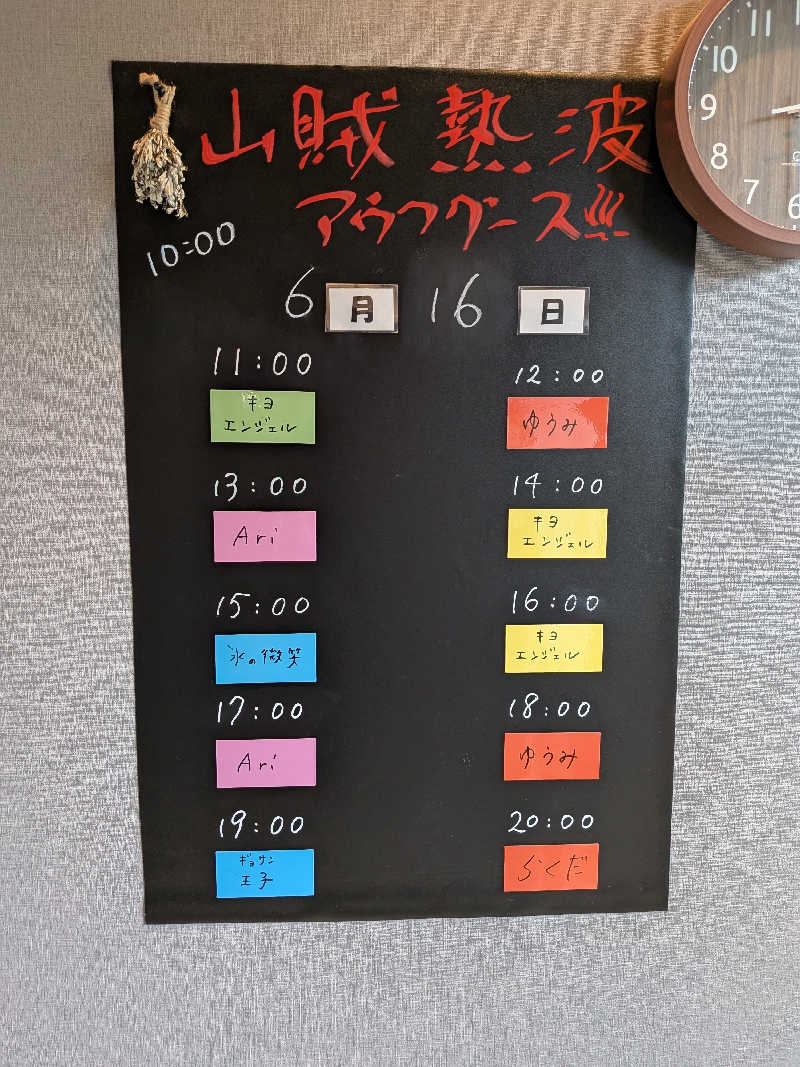 山賊 熱波
アウフグース!!!
10:00
6月 16日
11:00
キヨ
エンジェル
12:00
ゆうみ
13:00
Ari
14:00
キヨ
エンジェル
15:00
氷の微笑
16:00
キヨ
エンジェル
17:00
Ari
18:00
ゆうみ
19:00
ギョサン
王子
20:00
らくだ
11
10
9
8
7
6